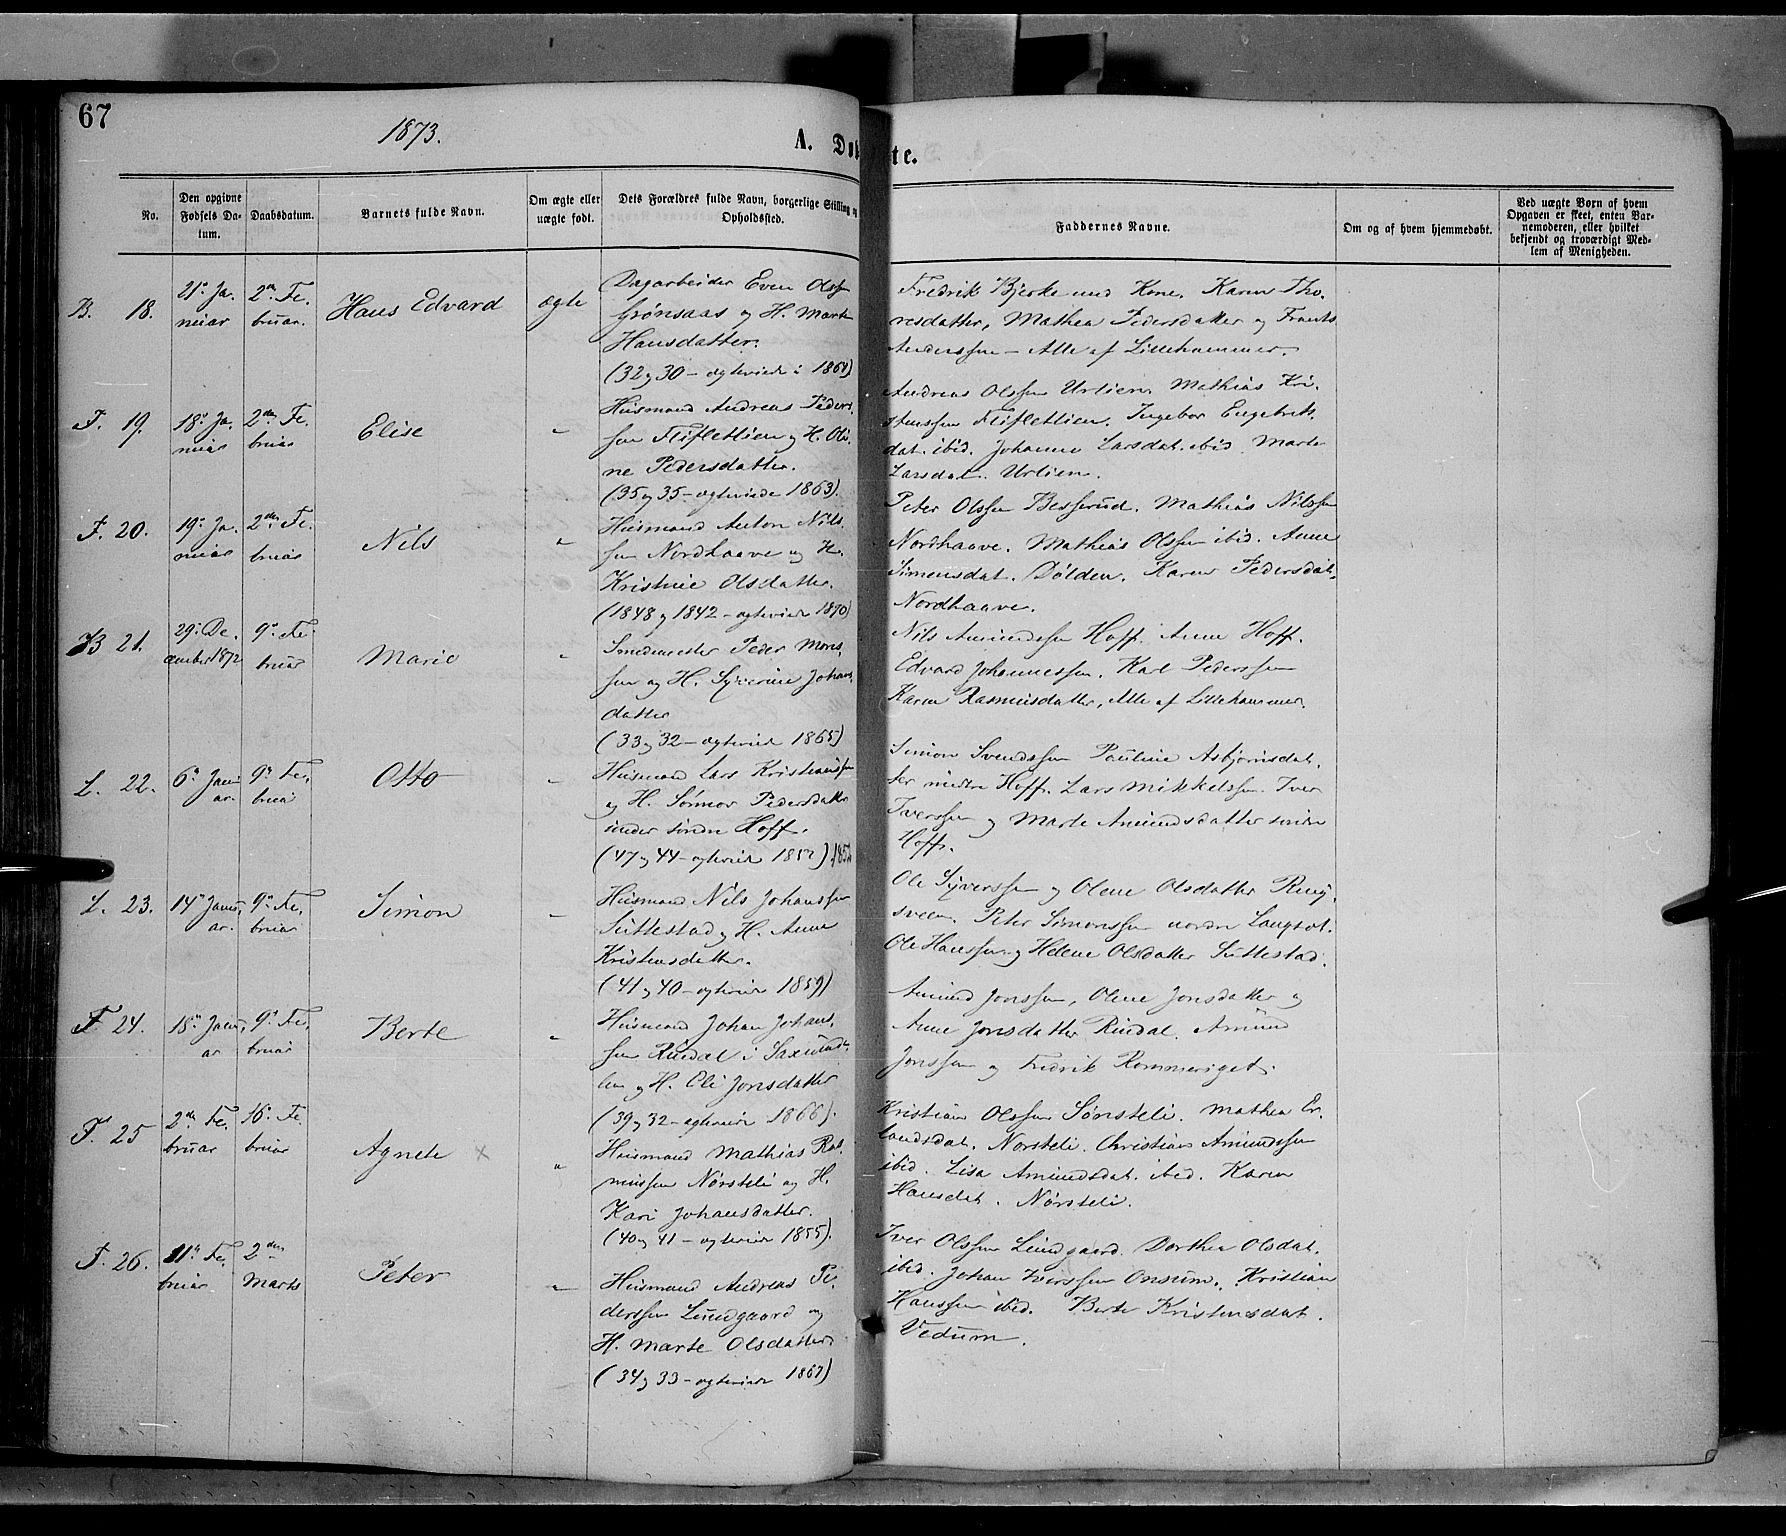 67
1873.
A. Døbte.
No.
Den opgivne Fødsels Da-
tum.
Daabsdatum.
Barnets fulde Navn.
Om ægte eller
uægte født.
Dets Forældres fulde Navn, borgerlige Stilling og
Opholdssted.
Faddernes Navne.
Om og af hvem hjemmedøbt.
Ved uægte Born af hvem
Opgaven er skeet, enten Bar-
nemoderen, eller hvilket
bekjendt og troværdigt Med-
lem af Menigheden.
B. 18.
21de Ja-
nuar
2den Fe-
bruar.
Hans Edvard
ægte
Dagarbeider Even Olssen
Grønsaas og H. Marte
Hansdatter.
(32 og 30 - ægteviede i 1864)
Fredrik Bjerke med Kone. Karen Tho-
resdatter, Mathea Pedersdatter og Frants
Anderssen - Alle af Lillehammer.
F. 19.
18de Ja-
nuar
2den Fe-
bruar
Elise
"
Husmand Andreas Peders-
sen Fliflettien og H. Oli-
ne Pedersdatter.
(35 og 35 - ægteviede 1863).
Andreas Olssen Urlien. Mathias Kri-
stenssen Fliflettien. Ingebor Engebrets-
dat. ibid. Johanne Larsdat. ibid. Marte
Larsdat. Urlien.
F. 20.
19de Ja-
nuar
2den Fe-
bruar
Nils
"
Husmand Anton Nils-
sen Nordhaave og H.
Kristine Olsdatter.
(1848 og 1842 - ægteviede 1870)
Peter Olssen Besserud. Mathias Nilssen
Nordhaave. Mathias Olssen ibid. Anne
Simensdat. Dølden. Karen Pedersdat.
Nordhaave.
B 21.
29de De-
cember 1872
9de Fe-
bruar
Marie
"
Smedmester Peder Mons-
sen og H. Syverine Johans-
datter
(33 og 32 - ægteviede 1865)
Nils Amundssen Hoff. Anne Hoff.
Edvard Johannessen. Karl Pederssen
Karen Rasmusdatter, Alle af Lillehammer.
L. 22.
6te Janu-
ar.
9de Fe-
bruar
Otto
"
Husmand Lars Kristianssen
og H. Sønnov Pedersdatter
under søndre Hoff.
(47 og 44 - ægteviede 1852) 1852
Simon Svendssen Pauline Asbjørnsdat-
ter nedre Hoff. Lars Mikkelssen. Iver
Iverssen og Marte Amundsdatter søndre
Hoff.
L. 23.
14de Janu-
ar.
9de Fe-
bruar
Simon
"
Husmand Nils Johanssen
Suttestad og H. Anne
Kristensdatter.
(41 og 40 - ægteviede 1859)
Ole Syverssen og Olene Olsdatter Ring-
sveen. Peter Simonssen nordre Langset.
Ole Hanssen og Helene Olsdatter Suttestad.
F 24.
18de Janu-
ar
9de Fe-
bruar
Berte
"
Husmand Johan Johans-
sen Rindal i Saxumda-
len og H. Eli Jonsdatter
(39 og 32 - ægteviede 1866).
Amund Jonssen, Olene Jonsdatter og
Anne Jonsdatter Rindal. Amund
Jonssen og Fredrik Rommeriget.
F. 25
2den Fe-
bruar
16de Fe-
bruar
Agnete ×
"
Husmand Mathias Ras-
mussen Nørsteli og H.
Kari Johansdatter.
(40 og 41 - ægteviede 1855).
Kristian Olssen Sønsteli. Mathea Er-
landsdat. Norsteli. Christian Amundssen
ibid. Lisa Amundsdat. ibid. Karen
Hansdat. Nørsteli.
F. 26.
11te Fe-
bruar
2den
Marts
Peter
"
Husmand Andreas Pe-
derssen Lundgaard og
H. Marte Olsdatter.
(34 og 33 - ægteviede 1867)
Iver Olssen Lundgaard. Dorthea Olsdat.
ibid. Johan Iverssen Onsum. Kristian
Hanssen ibid. Berte Kristensdat.
Vedum.